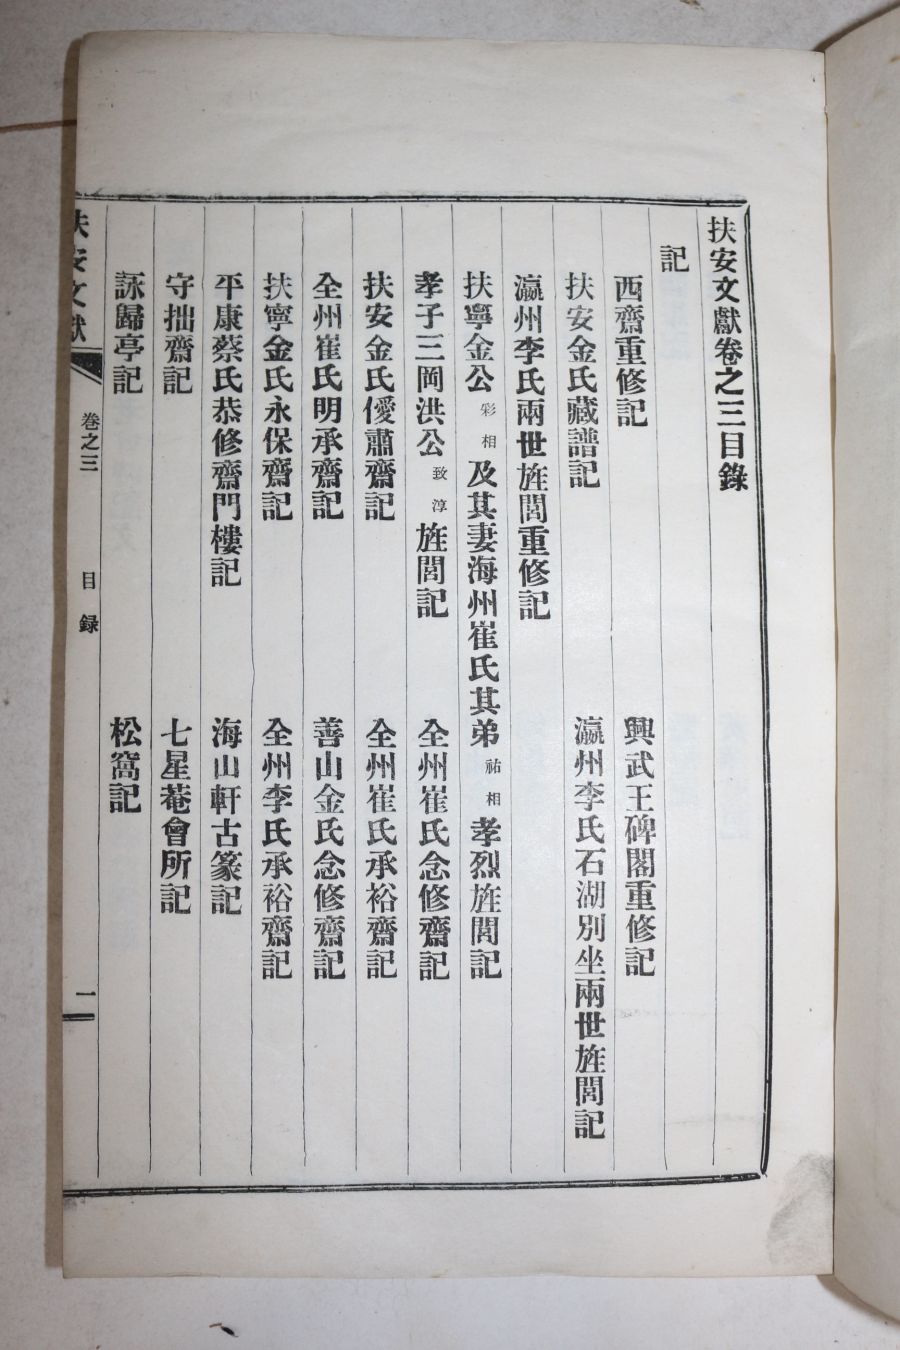 扶安文獻卷之三目錄
記
西齋重修記　興武王碑閣重修記
扶安金氏藏譜記　瀛州李氏石湖別坐兩世旌閭記
瀛州李氏兩世旌閭重修記
扶寧金公彩相及其妻海州崔氏其弟祐相孝烈旌閭記
孝子三岡洪公致淳旌閭記　全州崔氏念修齋記
扶安金氏優肅齋記　全州崔氏承裕齋記
全州崔氏明承齋記　善山金氏念修齋記
扶寧金氏永保齋記　全州李氏承裕齋記
平康蔡氏恭修齋門樓記　海山軒古篆記
守拙齋記　七星菴會所記
詠歸亭記　松窩記
扶安文獻　卷之三　目錄　一